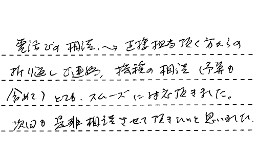 電話での相談、→ 直接担当頂く方からの
折り返しご連絡、接種の相談(予算も
含めて)とても、スムーズには応頂きました。
次回も是非相談させて頂きたいと思いました。